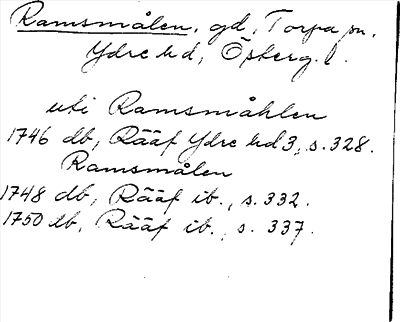 Ramsmålen, gd, Torpa sn,
Ydre hd, Österg. l.
uti Ramsmåhlen
1746 db, Rääf Ydre hd 3, s. 328.
Ramsmålen
1748 db, Rääf ib., s. 332.
1750 db, Rääf ib., s. 337.